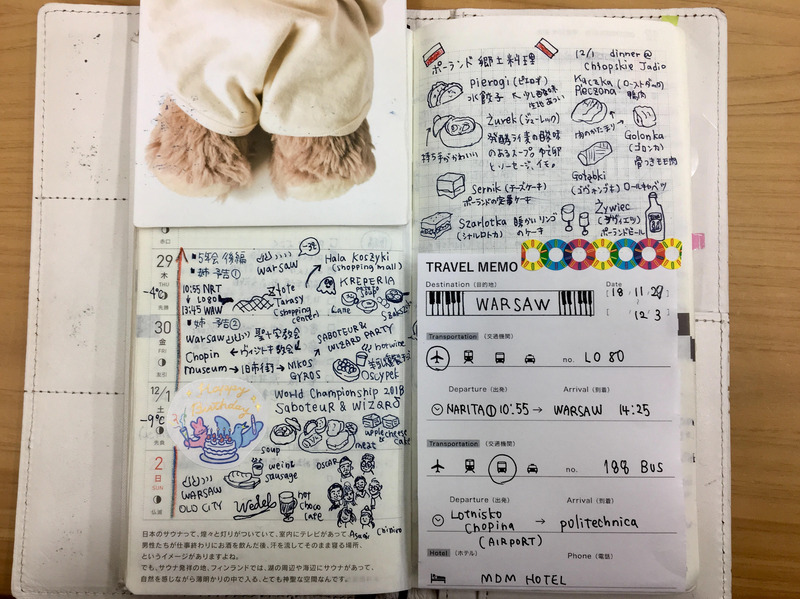 赤口
29
木
THU
先勝
-4℃
30
金
FRI
友引
12/1
土
-9℃
先負
2
日
SUN
仏滅
WARSAW
-3℃
10:55 NRT
↓ LO80
13:45 WAW
Złote
Tarasy
(shopping
center)
Hala Koszyki
(shopping mall)
KREPERIA
Warsaw
聖十字教会
Chopin
museum → 旧市街 → NIKOS
GYROS
SABOTEUR &
WIZARD PARTY
hot wine
oscypek
Happy
Birthday
World Championship 2018
Saboteur & WIZARD
soup
meat
apple cheese
cake
swein &
sausage
OSCAR
WARSAW
OLD CITY
Wedel
hot
choco
late
Asami
Chihiro
日本のサウナって、煌々と灯りがついていて、室内にテレビがあって、
男性たちが仕事終わりにお酒を飲んだ後、汗を流してそのまま寝る場所、
というイメージがありますよね。
でも、サウナ発祥の地、フィンランドでは、湖の周辺や海辺にサウナがあって、
自然を感じながら薄明かりの中で入る、とても神聖な空間なんです。
ポーランド 郷土料理
pierogi (ピエロギ)
水餃子
Żurek (ジューレック)
発酵ライ麦の酸味
のあるスープ。ゆで卵
とソーセージ、イモ。
持ち手がかわいい
Sernik (チーズケーキ)
ポーランドの定番ケーキ
Szarlotka 暖かいリンゴ
(シャルロトカ) のケーキ
12/1 dinner @
Chłopskie Jadło
Kaczka (ローストダック)
Pieczona 鴨肉
Golonka
(ゴロンカ)
骨つきモモ肉
Gołąbki
(ゴヴォンプキ) ロールキャベツ
Żywiec
(ジヴィエツ)
ポーランドビール
TRAVEL MEMO
Destination (目的地)
WARSAW
Date
'18. 11/29
12/3
Transportation (交通機関)
no. LO 80
Departure (出発) Arrival (到着)
NARITA① 10:55 → WARSAW 14:25
Transportation (交通機関)
no. 188 BUS
Departure (出発) Arrival (到着)
Lotnisko
Chopina → politechnica
(AIRPORT)
Hotel (ホテル) Phone (電話)
MDM HOTEL